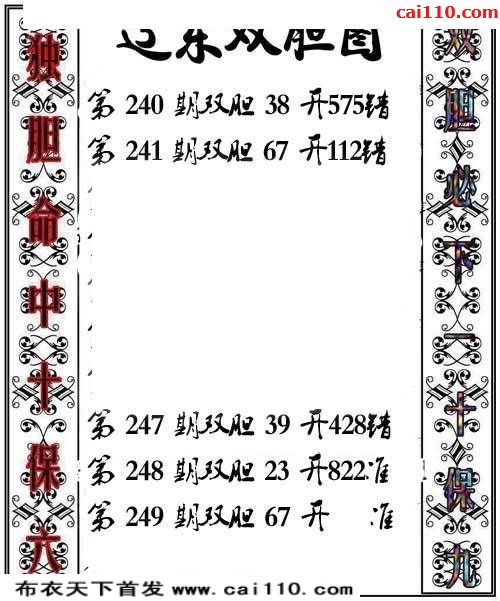 cai110.com
辽东双胆图
独胆命中十保六
第 240 期双胆 38 开575错
第 241 期双胆 67 开112错
第 247 期双胆 39 开428错
第 248 期双胆 23 开822准
第 249 期双胆 67 开 准
双胆必下一十保九
布衣天下首发 www.cai110.com